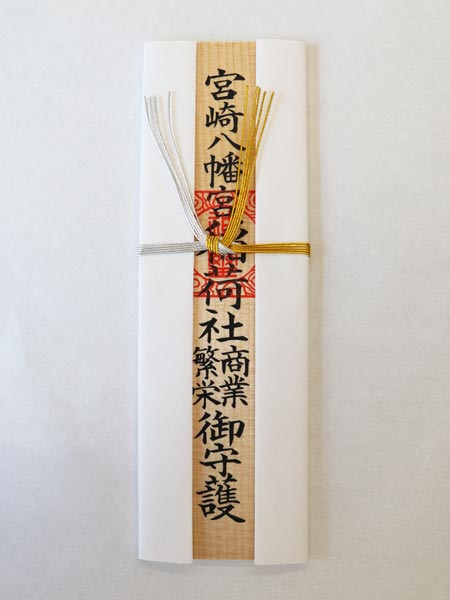 宮崎八幡宮稲荷社
商業
繁栄
御守護